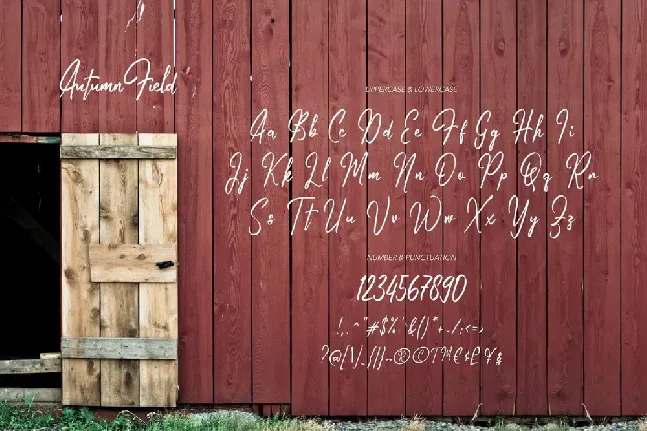 Autumn Field
UPPERCASE & LOWERCASE
Aa Bb Cc Dd Ee Ff Gg Hh Ii
Jj Kk Ll Mm Nn Oo Pp Qq Rr
Ss Tt Uu Vv Ww Xx Yy Zz
NUMBER & PUNCTUATION
1234567890